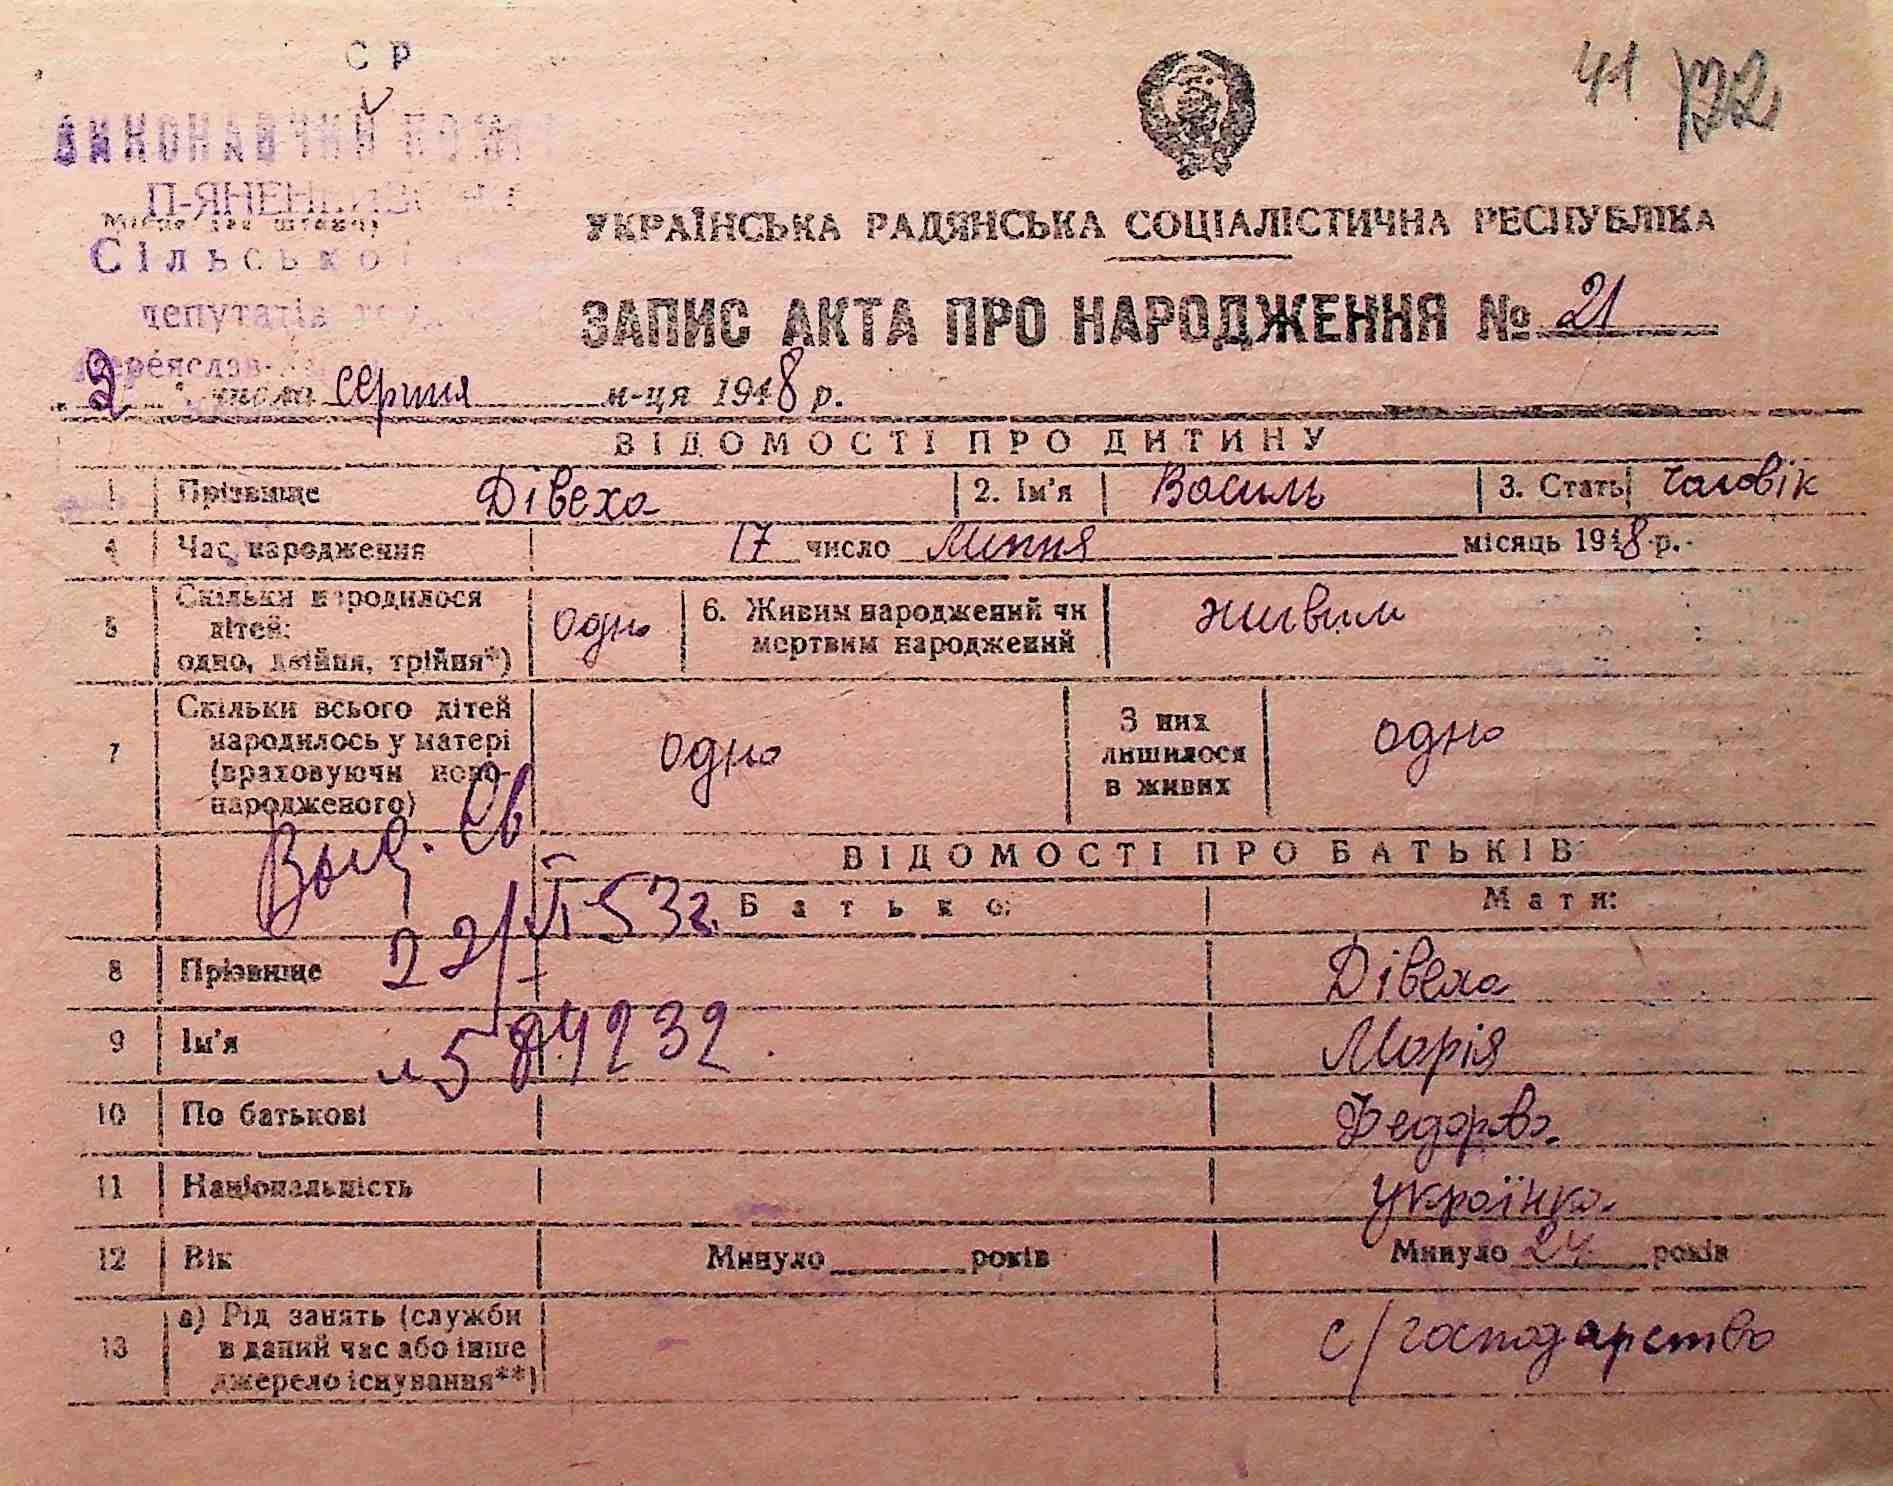 С Р
41 122
ВИКОНАВЧИЙ
П-ЯНЕН
Місце для штампу
Сільської
депутатів
Переяслав-
УКРАЇНСЬКА РАДЯНСЬКА СОЦІАЛІСТИЧНА РЕСПУБЛІКА
ЗАПИС АКТА ПРО НАРОДЖЕННЯ № 21
2 числа серпня м-ця 1948 р.
ВІДОМОСТІ ПРО ДИТИНУ
1 Прізвище Дівеха 2. Ім'я Василь 3. Стать чоловік
4 Час народження 17 число Липня місяць 1948 р.
5 Скільки народилося дітей: одно, двійня, трійня*) одно 6. Живим народжений чи мертвим народжений живим
7 Скільки всього дітей народилось у матері (враховуючи новонародженого) одно З них лишилося в живих одно
Выд. Св
ВІДОМОСТІ ПРО БАТЬКІВ
Батько: Мати:
22/VI 53 г.
8 Прізвище Дівеха
9 Ім'я Марія
584232
10 По батькові Федорівна
11 Національність українка
12 Вік Минуло ____ років Минуло 24 років
13 а) Рід занять (служби в даний час або інше джерело існування**) с/господарство